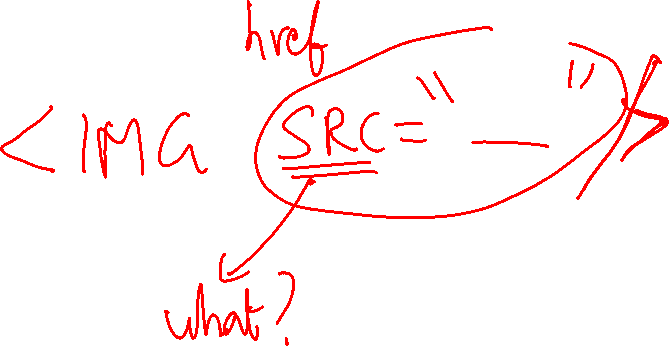 href
<IMG SRC="__"/>
what?